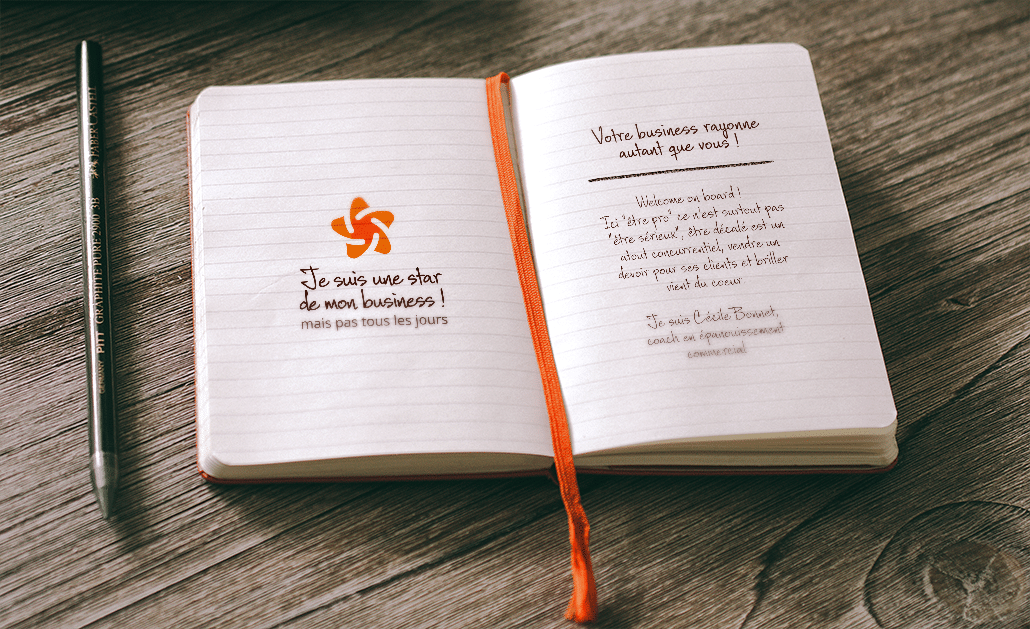 Je suis une star
de mon business !
mais pas tous les jours
Votre business rayonne
autant que vous !
Welcome on board !
Ici "être pro" ce n'est surtout pas
"être sérieux", être décalé est un
atout concurrentiel, vendre un
devoir pour ses clients et briller
vient du coeur.
Je suis Cécile Bonnet,
coach en épanouissement
commercial
PITT GRAPHITE PURE 2900 3B
FABER-CASTELL